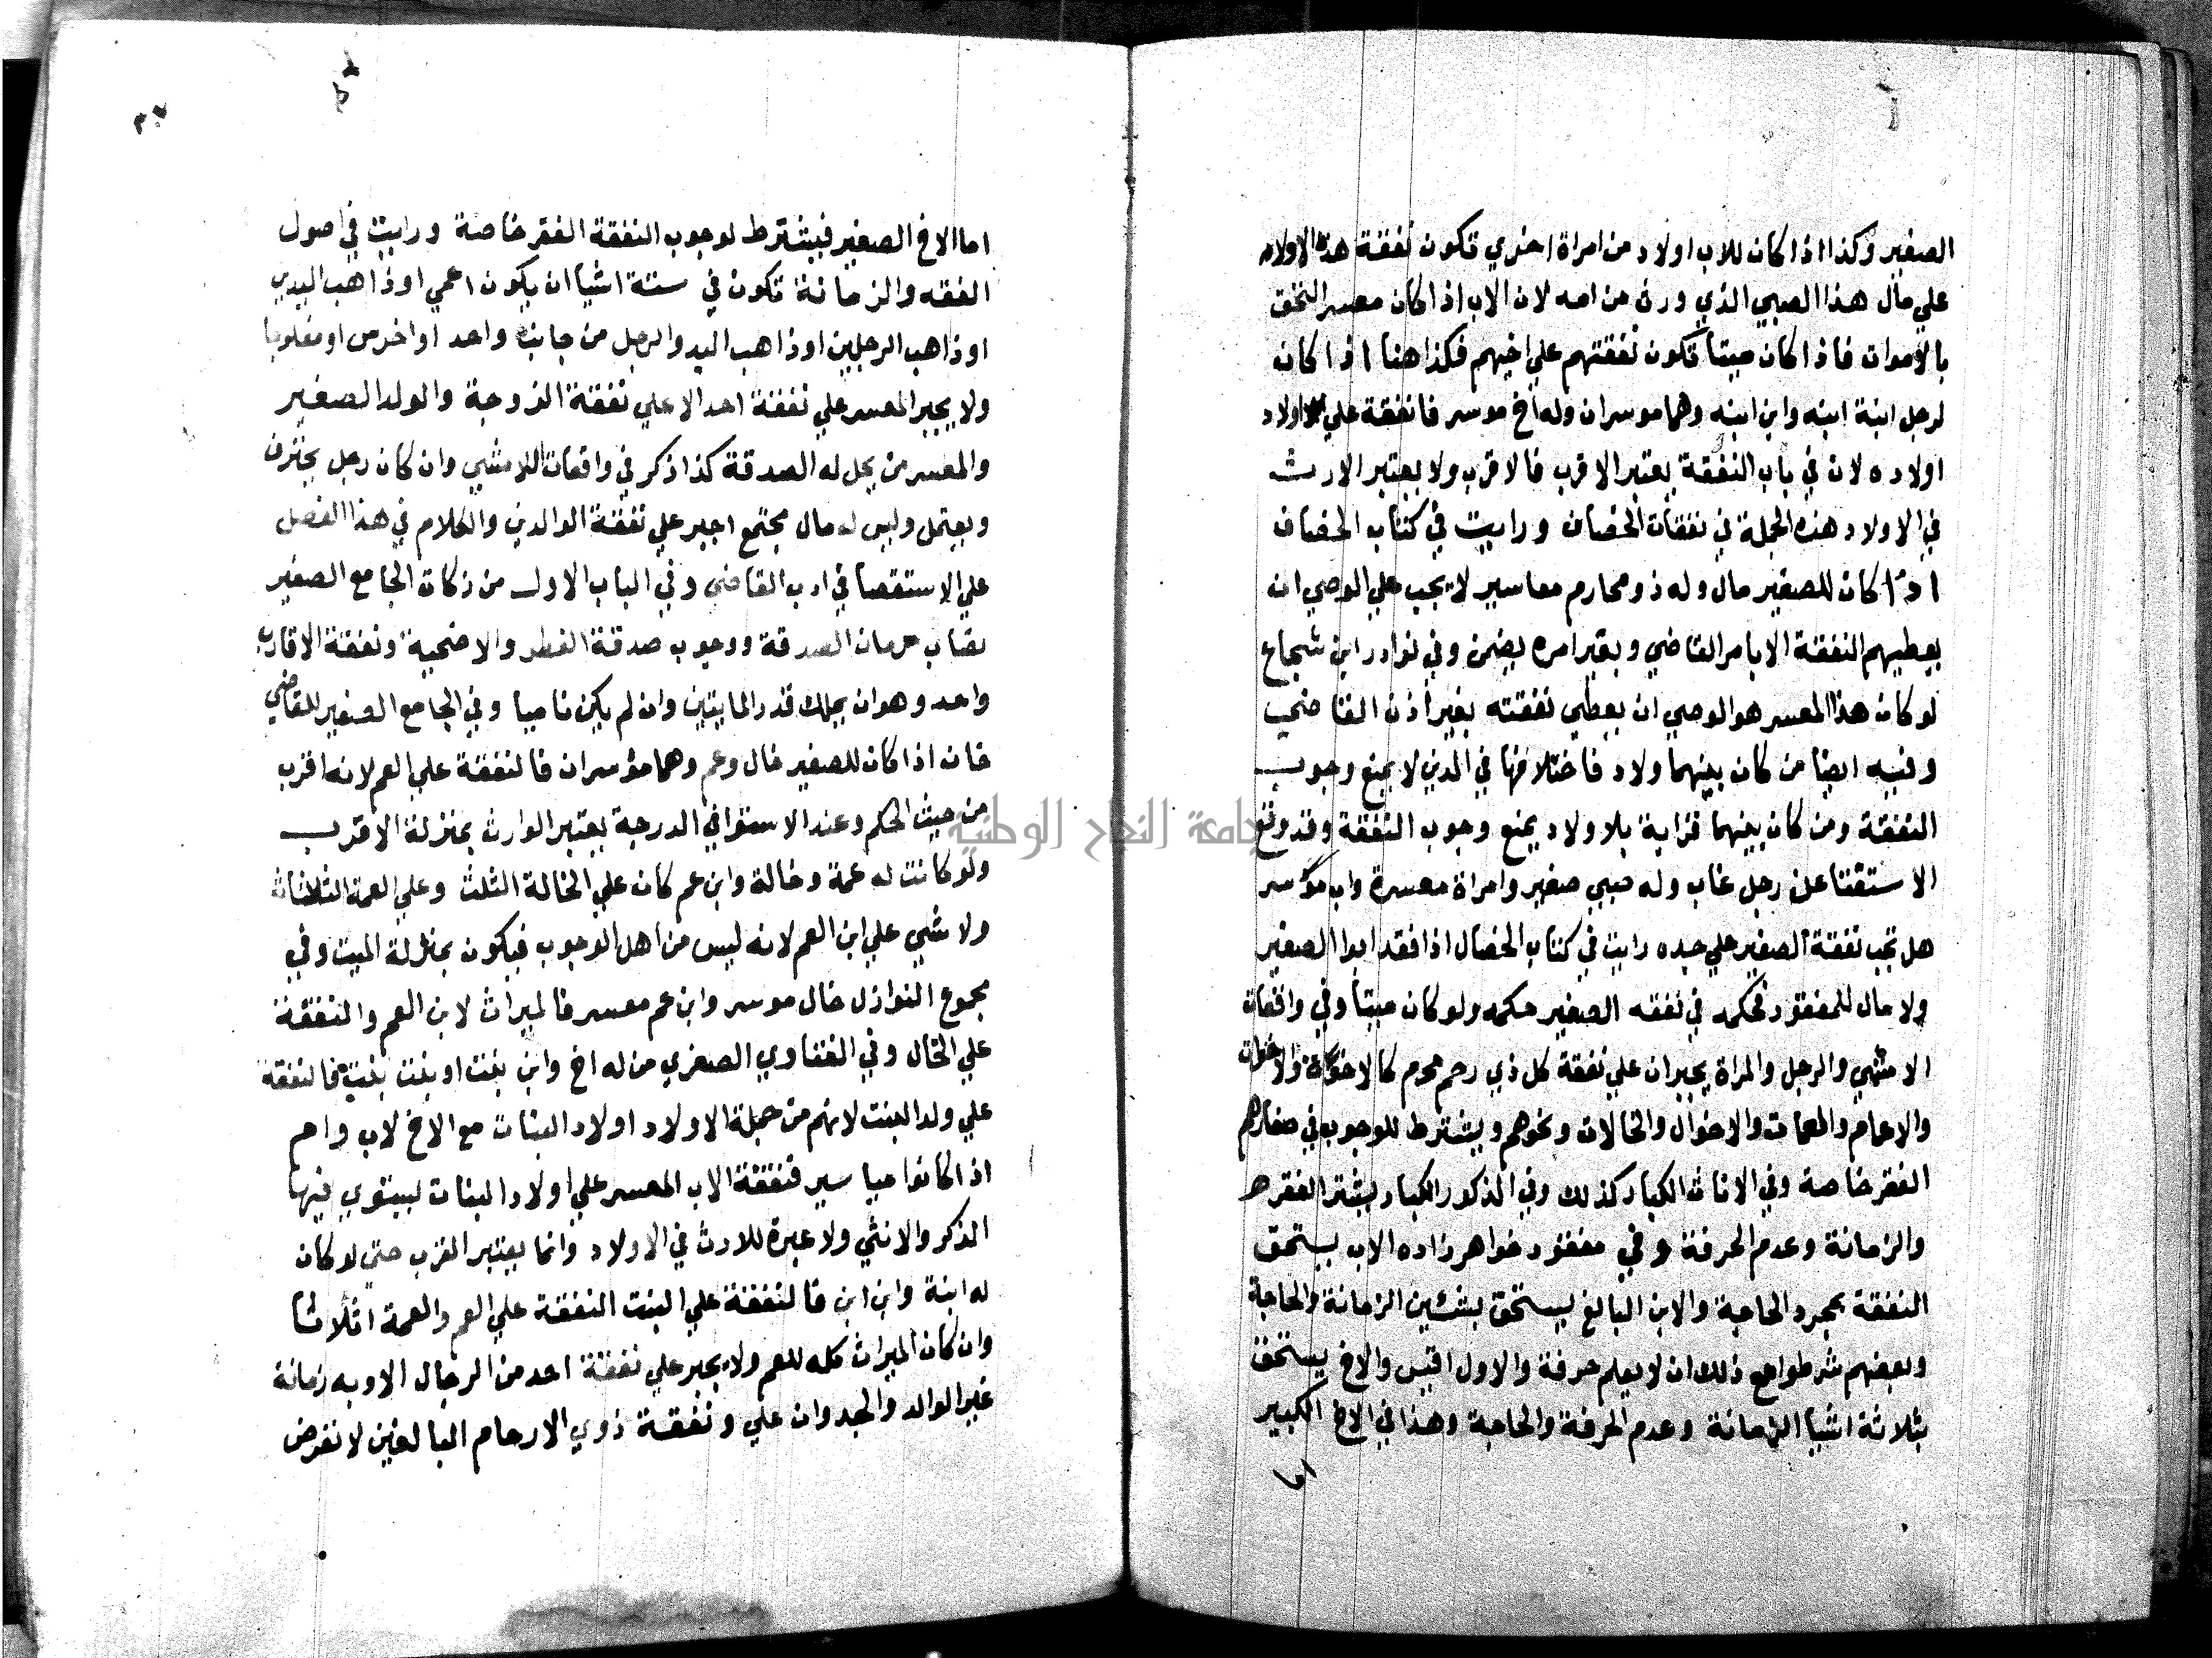 الصغير وكذا اذا كان للاب اولاد من امراة اخري تكون نفقة هذه الاولاد
علي مال هذا الصبي الذي ورث من امه لان الاب اذا كان معسر التحق
بالاموات فاذا كان ميتا تكون نفقتهم علي اخيهم فكذا هنا اذا كان
لرجل ابنة ابنه وابن ابنه وهما موسران وله اخ موسر فالنفقة علي اولاد
اولاده لان في باب النفقة يعتبر الاقرب فالاقرب ولا يعتبر الارث
في الاولاد هذه الجملة في نفقات الخصاف ورايت في كتاب الخصاف
اذا كان للصغير مال وله ذو محارم معاسير لا يجب علي الوصي ان
يعطيهم النفقة الا بامر القاضي وبغير امره يضمن وفي نوادر ابن شجاع
لو كان هذا المعسر هو الوصي ان يعطي نفقته بغير اذن القاضي
وفيه ايضا من كان بينهما ولاد فاختلافها في الدين لا يمنع وجوب
النفقة ومن كان بينهما قرابة بلا ولاد يمنع وجوب النفقة وقد وقع
الاستفتا عن رجل غاب وله صبي صغير وامراة معسرة واب موسر
هل تجب نفقة الصغير علي جده رايت في كتاب الخصال اذا فقد ابوا الصغير
ولا مال للمفقود فحكمه في نفقه الصغير حكمه ولو كان ميتا وفي واقعات
الامشي والرجل والمراة يجبران علي نفقة كل ذي رحم محرم كالاخوة والاخوات
والاعمام والعمات والاخوال والخالات ونحوهم ويشترط للوجوب في صغارهم
الفقر خاصة وفي الاناث الكبار كذلك وفي الذكور الكبار يشتر الفقر
والزمانة وعدم الحرفة وفي مفقود خواهر زاده الاب يستحق
النفقة بمجرد الحاجة والابن البالغ يستحق بشئين الزمانة والحاجة
وبعضهم شرطوا مع ذلك ان لا يعلم حرفة والاول اقيس والاخ يستحق
بثلاثة اشيا الزمانة وعدم الحرفة والحاجة وهذا في الاخ الكبير
اما
اما الاخ الصغير فيشترط لوجوب النفقة الفقر خاصة ورايت في اصول
الفقه والزمانة تكون في ستة اشيا ان يكون اعمي او ذاهب اليدين
او ذاهب الرجلين او ذاهب اليد والرجل من جانب واحد او اخرس او مفلوجا
ولا يجبر المعسر علي نفقة احد الا علي نفقة الزوجة والولد الصغير
والمعسر من يحل له الصدقة كذا ذكر في واقعات اللامشي وان كان رجل يحترف
ويعتمل وليس له مال مجتمع اجبر علي نفقة الوالدين والكلام في هذا الفصل
علي الاستقصا في ادب القاضي وفي الباب الاول من زكات الجامع الصغير
نصاب حرمان الصدقة ووجوب صدقة الفطر والاضحية ونفقة الاقارب
واحد وهو ان يملك قدر المايتين وان لم يكن ناميا وفي الجامع الصغير للقاضي
خان اذا كان للصغير خال وعم وهما موسران فالنفقة علي العم لانه اقرب
من حيث الحكم وعند الاستوا في الدرجة يعتبر الوارث بمنزلة الاقرب
ولو كانت له عمة وخالة وابن عم كان علي الخالة الثلث وعلي العمة الثلثان
ولا شي علي ابن العم لانه ليس من اهل الوجوب فيكون بمنزلة الميت وفي
مجموع النوازل خال موسر وابن عم معسر فالميراث لابن العم والنفقة
علي الخال وفي الفتاوي الصغري من له اخ وابن بنت او بنت بنت فالنفقة
علي ولد البنت لانهم من جملة الاولاد اولاد البنات مع الاخ لاب وام
اذا كانوا مياسير فنفقة الاب المعسر علي اولاد البنات ليستوي فيها
الذكر والانثي ولا عبرة للارث في الاولاد وانما يعتبر القرب حتي لو كان
له ابنة وابن ابن فالنفقة علي البنت النفقة علي العم والعمة اثلاثا
وان كان الميراث كله للعم ولا يجبر علي نفقة احد من الرجال الا وبه زمانة
غير الوالد والجد وان علي ونفقة ذوي الارحام البالغين لا تفرض
جامعة النجاح الوطنية